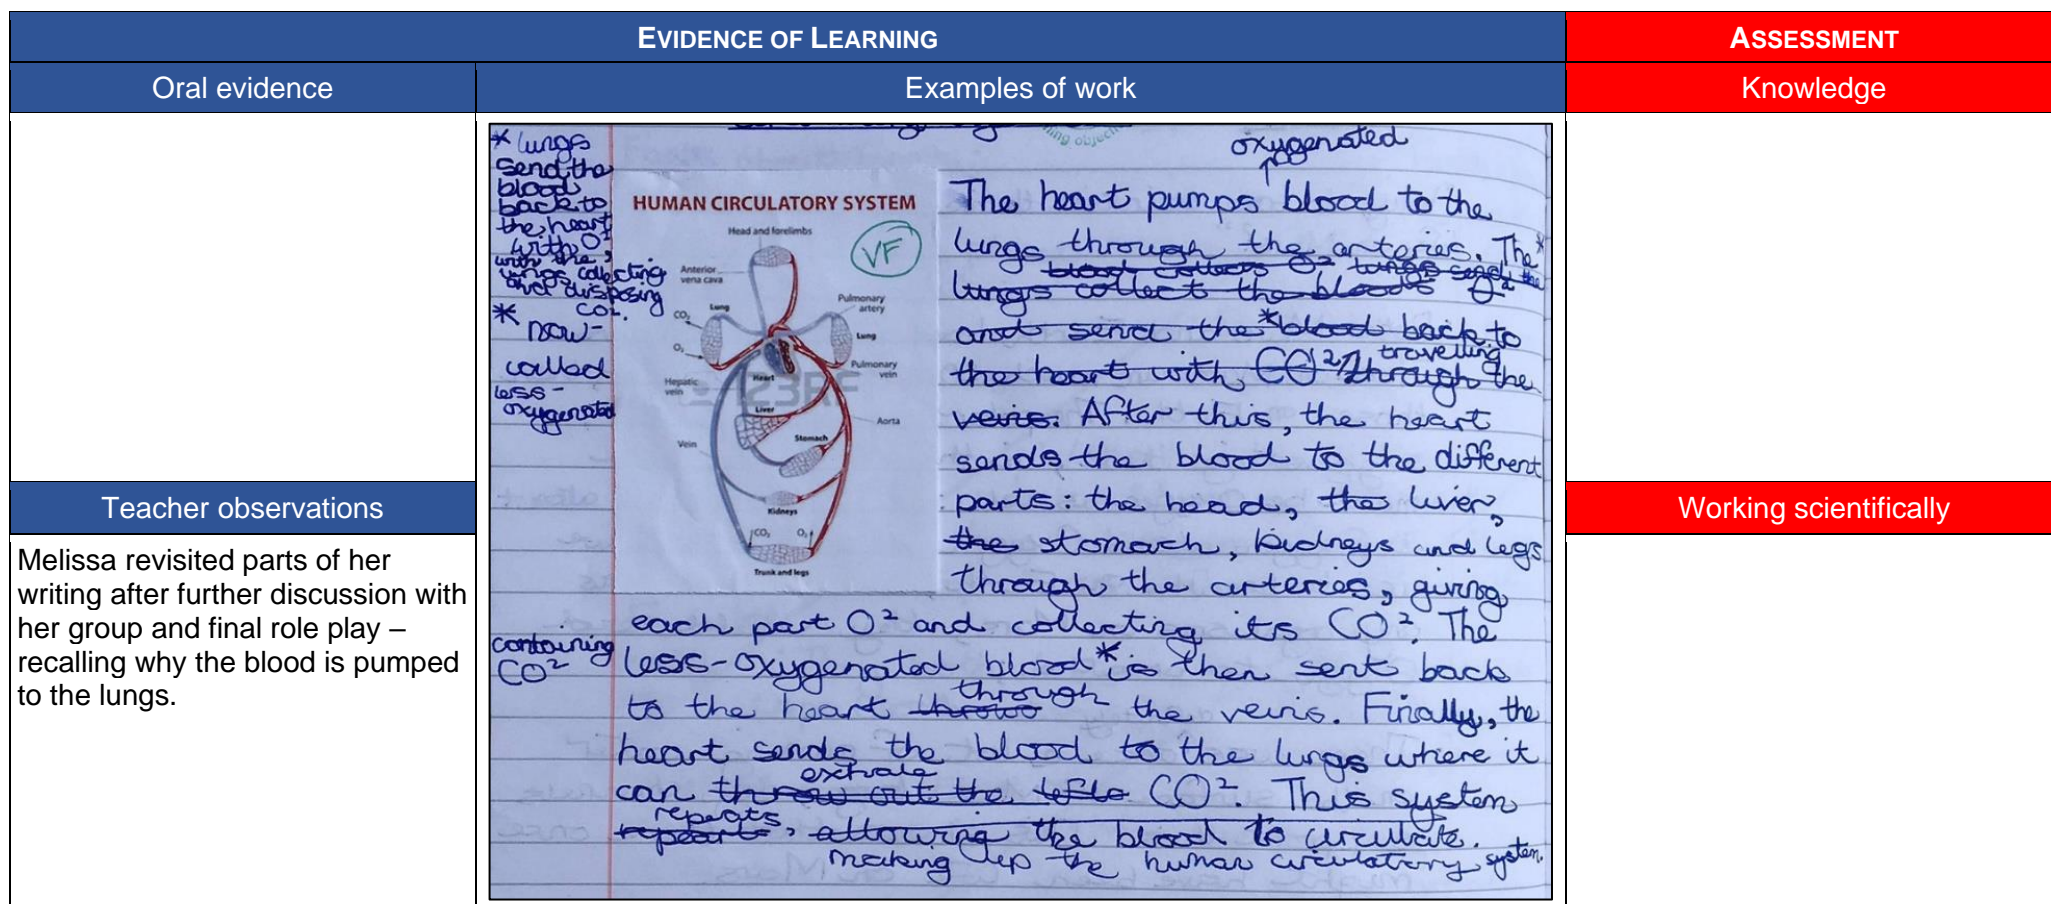 EVIDENCE OF LEARNING
ASSESSMENT
Oral evidence
Examples of work
Knowledge
Teacher observations
Melissa revisited parts of her
writing after further discussion with
her group and final role play –
recalling why the blood is pumped
to the lungs.
Working scientifically
* lungs
send the
blood
back to
the heart
with O²,
with the
lungs collecting
and disposing
CO².
* now
called
less-
oxygenated
containing
CO²
HUMAN CIRCULATORY SYSTEM
Head and forelimbs
VF
Anterior
vena cava
Lung
Pulmonary
artery
CO₂
Lung
O₂
Pulmonary
vein
Hepatic
vein
Heart
123RF
Liver
Aorta
Vein
Stomach
Kidneys
CO₂
O₂
Trunk and legs
oxygenated
The heart pumps blood to the
lungs through the arteries. The*
blood collects O² lungs send the
lungs collect the bloods O²
and send the *blood back to
the heart with CO² travelling through the
veins. After this, the heart
sends the blood to the different
parts: the head, the liver,
the stomach, kidneys and legs
through the arteries, giving
each part O² and collecting its CO². The
less-oxygenated blood* is then sent back
to the heart through the veins. Finally, the
heart sends the blood to the lungs where it
exhale
can throw out the CO². This system
repeats,
repearts, allowing the blood to circulate.
making up the human circulatory system.